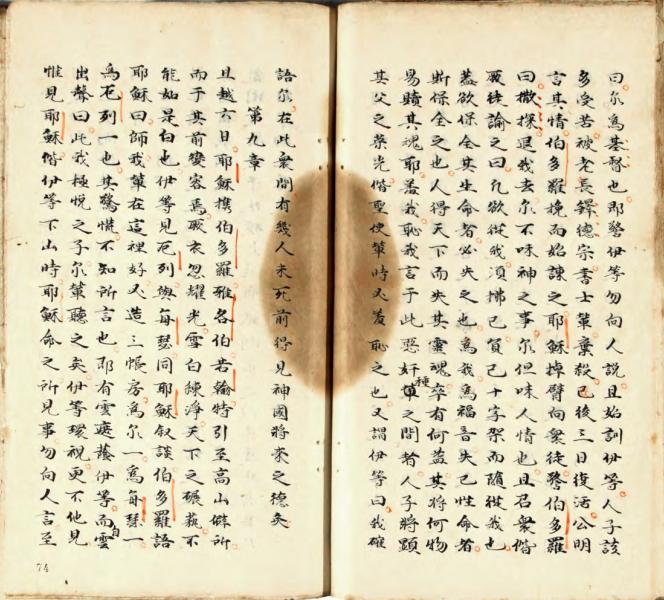 曰尔為基督也耶𥡴警伊等勿向人說且始訓伊等人子該
多受苦被老長鐸德宗書士輩棄殺已後三日復活公明
言其情伯多羅挽而始諫之耶穌掉臂向衆徒警伯多羅
曰撒探退我去尔不味神之事尔但味人情也且召衆偕
厥徒論之曰凢欲從我須拂已負己十字架而隨從我也
盖欲保全其生命者必失之也為我為福音失己性命者
斯保全之也人得天下而失其靈魂卒有何益其將何物
易賠其魂耶盖我恥我言于此惡奸種之間者人子將顕
其父之荣光偕聖使輩時又羞恥之也又謂伊等曰我確
語尔在此衆間有幾人未死前得見神國將來之德矣
第九章
且越六日耶穌携伯多羅雅各伯若翰特引至高山僻所
而于其前變容焉厥衣忽耀光雪白練淨天下之碾𦿔不
能如是白也伊等見厄列與每瑟同耶穌叙談伯多羅語
耶穌曰師我輩在這裡好又造三帳房為尔一為每瑟一
為厄列一也其驚慌不知所言也即有雲遮蔭伊等而自雲
出聲曰此我極悦之子尔輩聽之矣伊等環視更不他見
惟見耶穌偕伊等下山時耶穌命之所見事勿向人言至
74